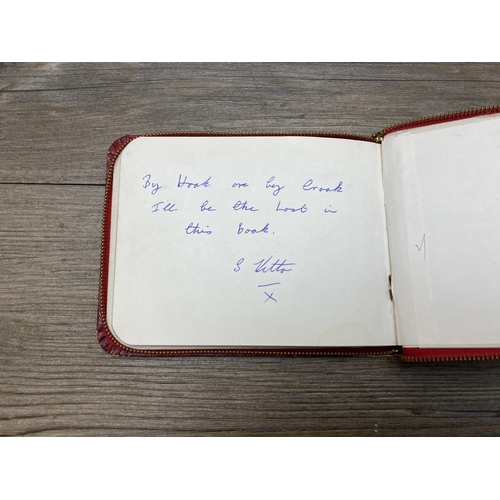 By Hook ore by Crook
I'll be the Last in
this book.
S Kitto
X